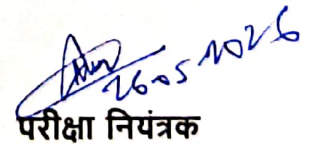 26.05.2026
परीक्षा नियंत्रक